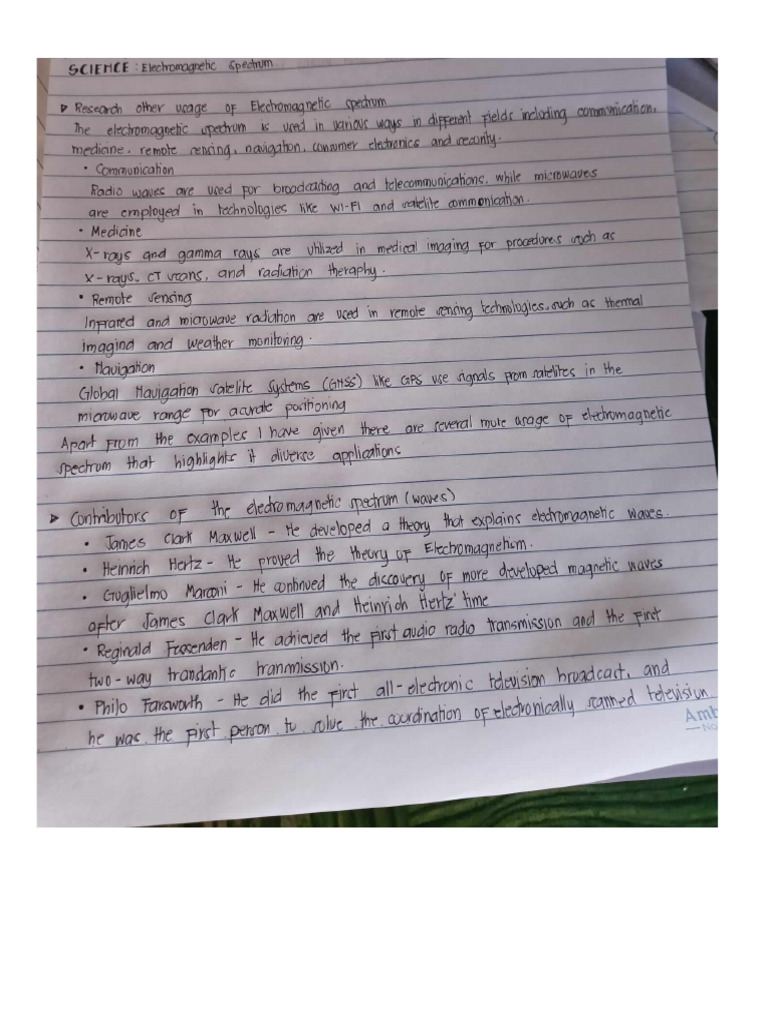 SCIENCE: Electromagnetic Spectrum
Research other usage of Electromagnetic spectrum
The electromagnetic spectrum is used in various ways in different fields including communication,
medicine, remote sensing, navigation, consumer electronics and security.
• Communication
Radio waves are used for broadcasting and telecommunications, while microwaves
are employed in technologies like WI-FI and satelite commonication.
• Medicine
X-rays and gamma rays are utilized in medical imaging for procedures such as
x-rays, CT scans, and radiation theraphy.
• Remote sensing
Infrared and microwave radiation are used in remote sensing technologies, such as thermal
imagind and weather monitoring.
• Navigation
Global Navigation satelite systems (GNSS) like GPS use signals from satelites in the
microwave range for acurate positioning
Apart from the examples I have given there are several mute usage of electromagnetic
spectrum that highlights it diverse applications
Contributors of the electromagnetic spectrum (waves)
• James Clark Maxwell - He developed a theory that explains electromagnetic waves.
• Heinrich Hertz - He proved the theory of Electromagnetism.
• Guglielmo Marconi - He continued the discovery of more developed magnetic waves
after James Clark Maxwell and Heinrich Hertz' time
• Reginald Fessenden - He achieved the first audio radio transmission and the first
two-way transmission.
• Philo Farsworth - He did the first all-electronic television broadcast, and
he was the first person to solve the coordination of electronically scanned television
Amb
No